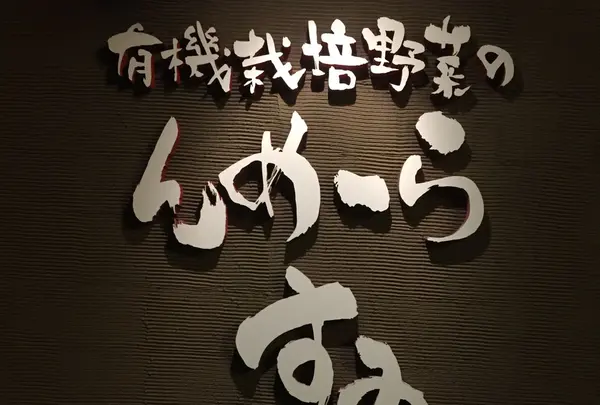 有機栽培野菜の
んめーら
す